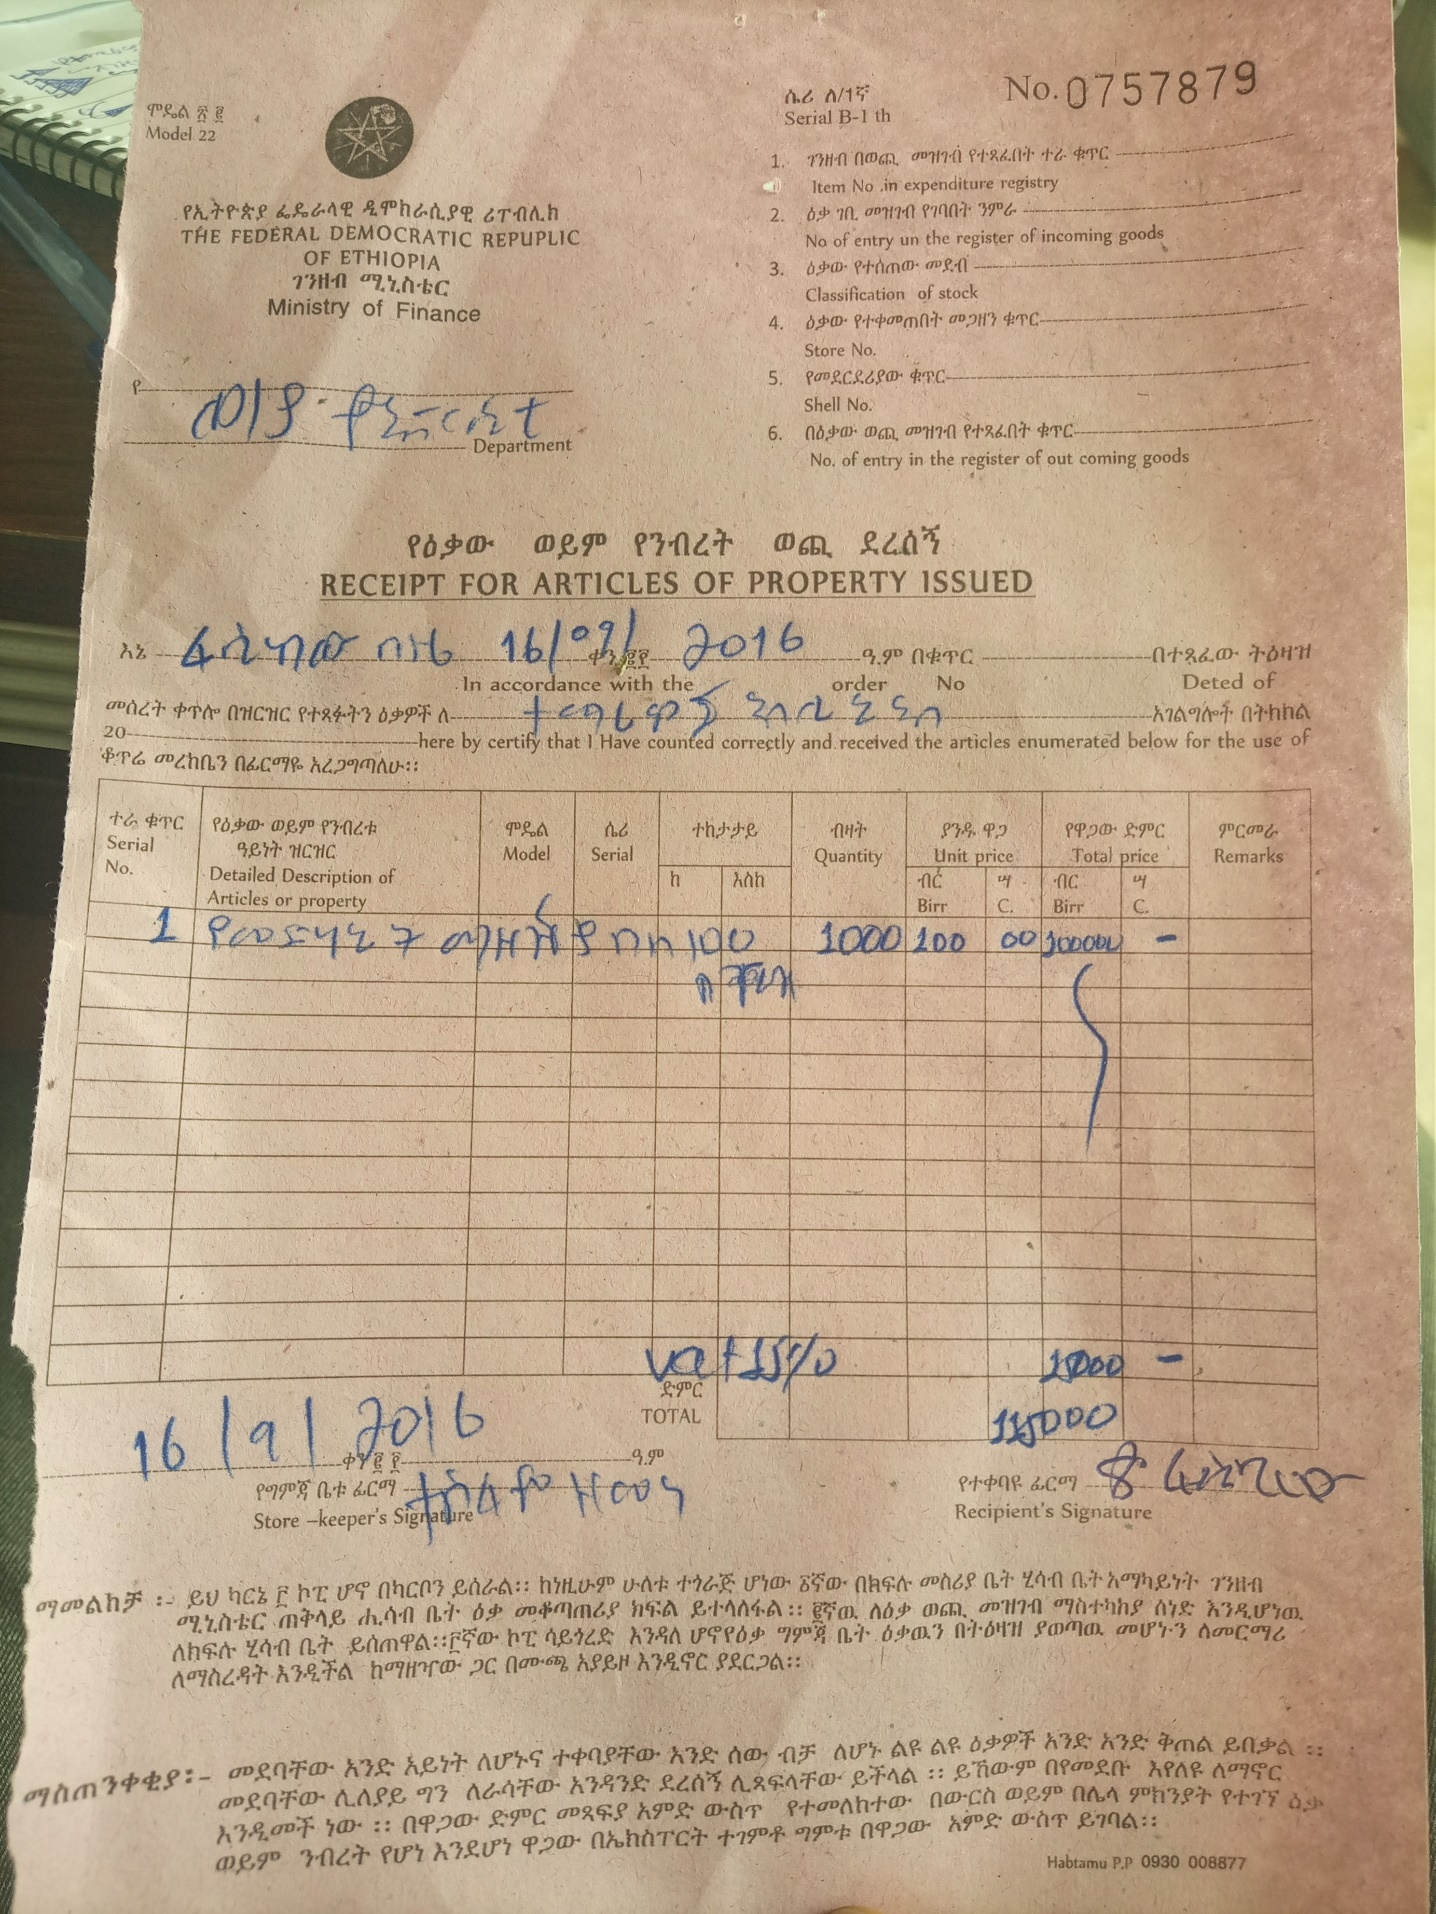 ሞዴል ፳ ፪
Model 22
ሴሪ ለ/1ኛ
Serial B-1 th
No. 0757879
የኢትዮጵያ ፌዴራላዊ ዲሞክራሲያዊ ሪፐብሊክ
THE FEDERAL DEMOCRATIC REPUPLIC
OF ETHIOPIA
ገንዘብ ሚኒስቴር
Ministry of Finance
የ
Department
1. ገንዘብ በወጪ መዝገብ የተጻፈበት ተራ ቁጥር
Item No .in expenditure registry
2. ዕቃ ገቢ መዝገብ የገባበት ንምራ
No of entry un the register of incoming goods
3. ዕቃው የተሰጠው መደብ
Classification of stock
4. ዕቃው የተቀመጠበት መጋዘን ቁጥር
Store No.
5. የመደርደሪያው ቁጥር
Shell No.
6. በዕቃው ወጪ መዝገብ የተጻፈበት ቁጥር
No. of entry in the register of out coming goods
የዕቃው ወይም የንብረት ወጪ ደረሰኝ
RECEIPT FOR ARTICLES OF PROPERTY ISSUED
እኔ 16/09/ ቀን ፳፻ 2016 ዓ.ም በቁጥር በተጻፈው ትዕዛዝ
In accordance with the order No Deted of
መሰረት ቀጥሎ በዝርዝር የተጻፉትን ዕቃዎች ለ አገልግሎች በትክክል
20 here by certify that I Have counted correctly and received the articles enumerated below for the use of
ቆጥሬ መረከቤን በፊርማዬ አረጋግጣለሁ፡፡
ተራ ቁጥር Serial No.
የዕቃው ወይም የንብረቱ ዓይነት ዝርዝር Detailed Description of Articles or property
ሞዴል Model
ሴሪ Serial
ተከታታይ ከ እስከ
ብዛት Quantity
ያንዱ ዋጋ Unit price ብር Birr ሣ C.
የዋጋው ድምር Total price ብር Birr ሣ C.
ምርመራ Remarks
1 የመድሃኒት ማዘዣ ባለ 100 1000 100 00 100000 -
vat 15% 15000 -
ድምር
TOTAL 115000
16/9/2016
ቀን ፳ ፻ ዓ.ም
የግምጃ ቤቱ ፊርማ
Store –keeper's Signature
የተቀባዩ ፊርማ
Recipient's Signature
ማመልከቻ ፡- ይህ ካርኔ ፫ ኮፒ ሆኖ በካርቦን ይሰራል፡፡ ከነዚሁም ሁለቱ ተጎራጅ ሆነው ፩ኛው በክፍሉ መስሪያ ቤት ሂሳብ ቤት አማካይነት ገንዘብ
ሚኒስቴር ጠቅላይ ሒሳብ ቤት ዕቃ መቆጣጠሪያ ክፍል ይተላለፋል፡፡ ፪ኛዉ ለዕቃ ወጪ መዝገብ ማስተካከያ ሰነድ እንዲሆነዉ
ለክፍሉ ሂሳብ ቤት ይሰጠዋል፡፡፫ኛው ኮፒ ሳይጎረድ እንዳለ ሆኖየዕቃ ግምጃ ቤት ዕቃዉን በትዕዛዝ ያወጣዉ መሆኑን ለመርማሪ
ለማስረዳት እንዲችል ከማዘዣው ጋር በሙጫ አያይዞ እንዲኖር ያደርጋል፡፡
ማስጠንቀቂያ፡- መደባቸው አንድ አይነት ለሆኑና ተቀባያቸው አንድ ሰው ብቻ ለሆኑ ልዩ ልዩ ዕቃዎች አንድ አንድ ቅጠል ይበቃል ፡፡
መደባቸው ሊለያይ ግን ለራሳቸው አንዳንድ ደረሰኝ ሊጻፍላቸው ይችላል ፡፡ ይኸውም በየመደቡ እየለዩ ለማኖር
እንዲመች ነው ፡፡ በዋጋው ድምር መጻፍያ አምድ ውስጥ የተመለከተው በውርስ ወይም በሌላ ምክንያት የተገኘ ዕቃ
ወይም ንብረት የሆነ እንደሆነ ዋጋው በኤክስፐርት ተገምቶ ግምቱ በዋጋው አምድ ውስጥ ይገባል፡፡
Habtamu P.P 0930 008877